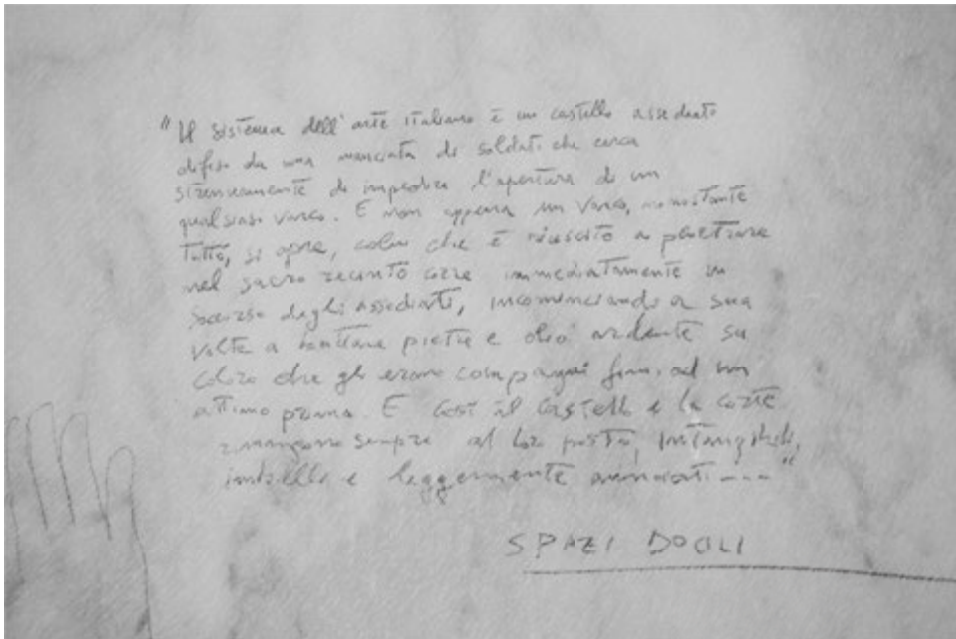 "Il sistema dell'arte italiano è un castello assediato
difeso da una manciata di soldati che cerca
strenuamente di impedire l'apertura di un
qualsiasi varco. E non appena un varco, nonostante
tutto, si apre, colui che è riuscito a penetrare
nel sacro recinto corre immediatamente in
soccorso degli assedianti, incominciando a sua
volta a buttare pietre e olio ardente su
coloro che gli erano compagni fino ad un
attimo prima. E così il castello e la corte
rimangono sempre al loro posto, intangibili,
imbelli e leggermente annoiati---"
SPAZI DOCILI